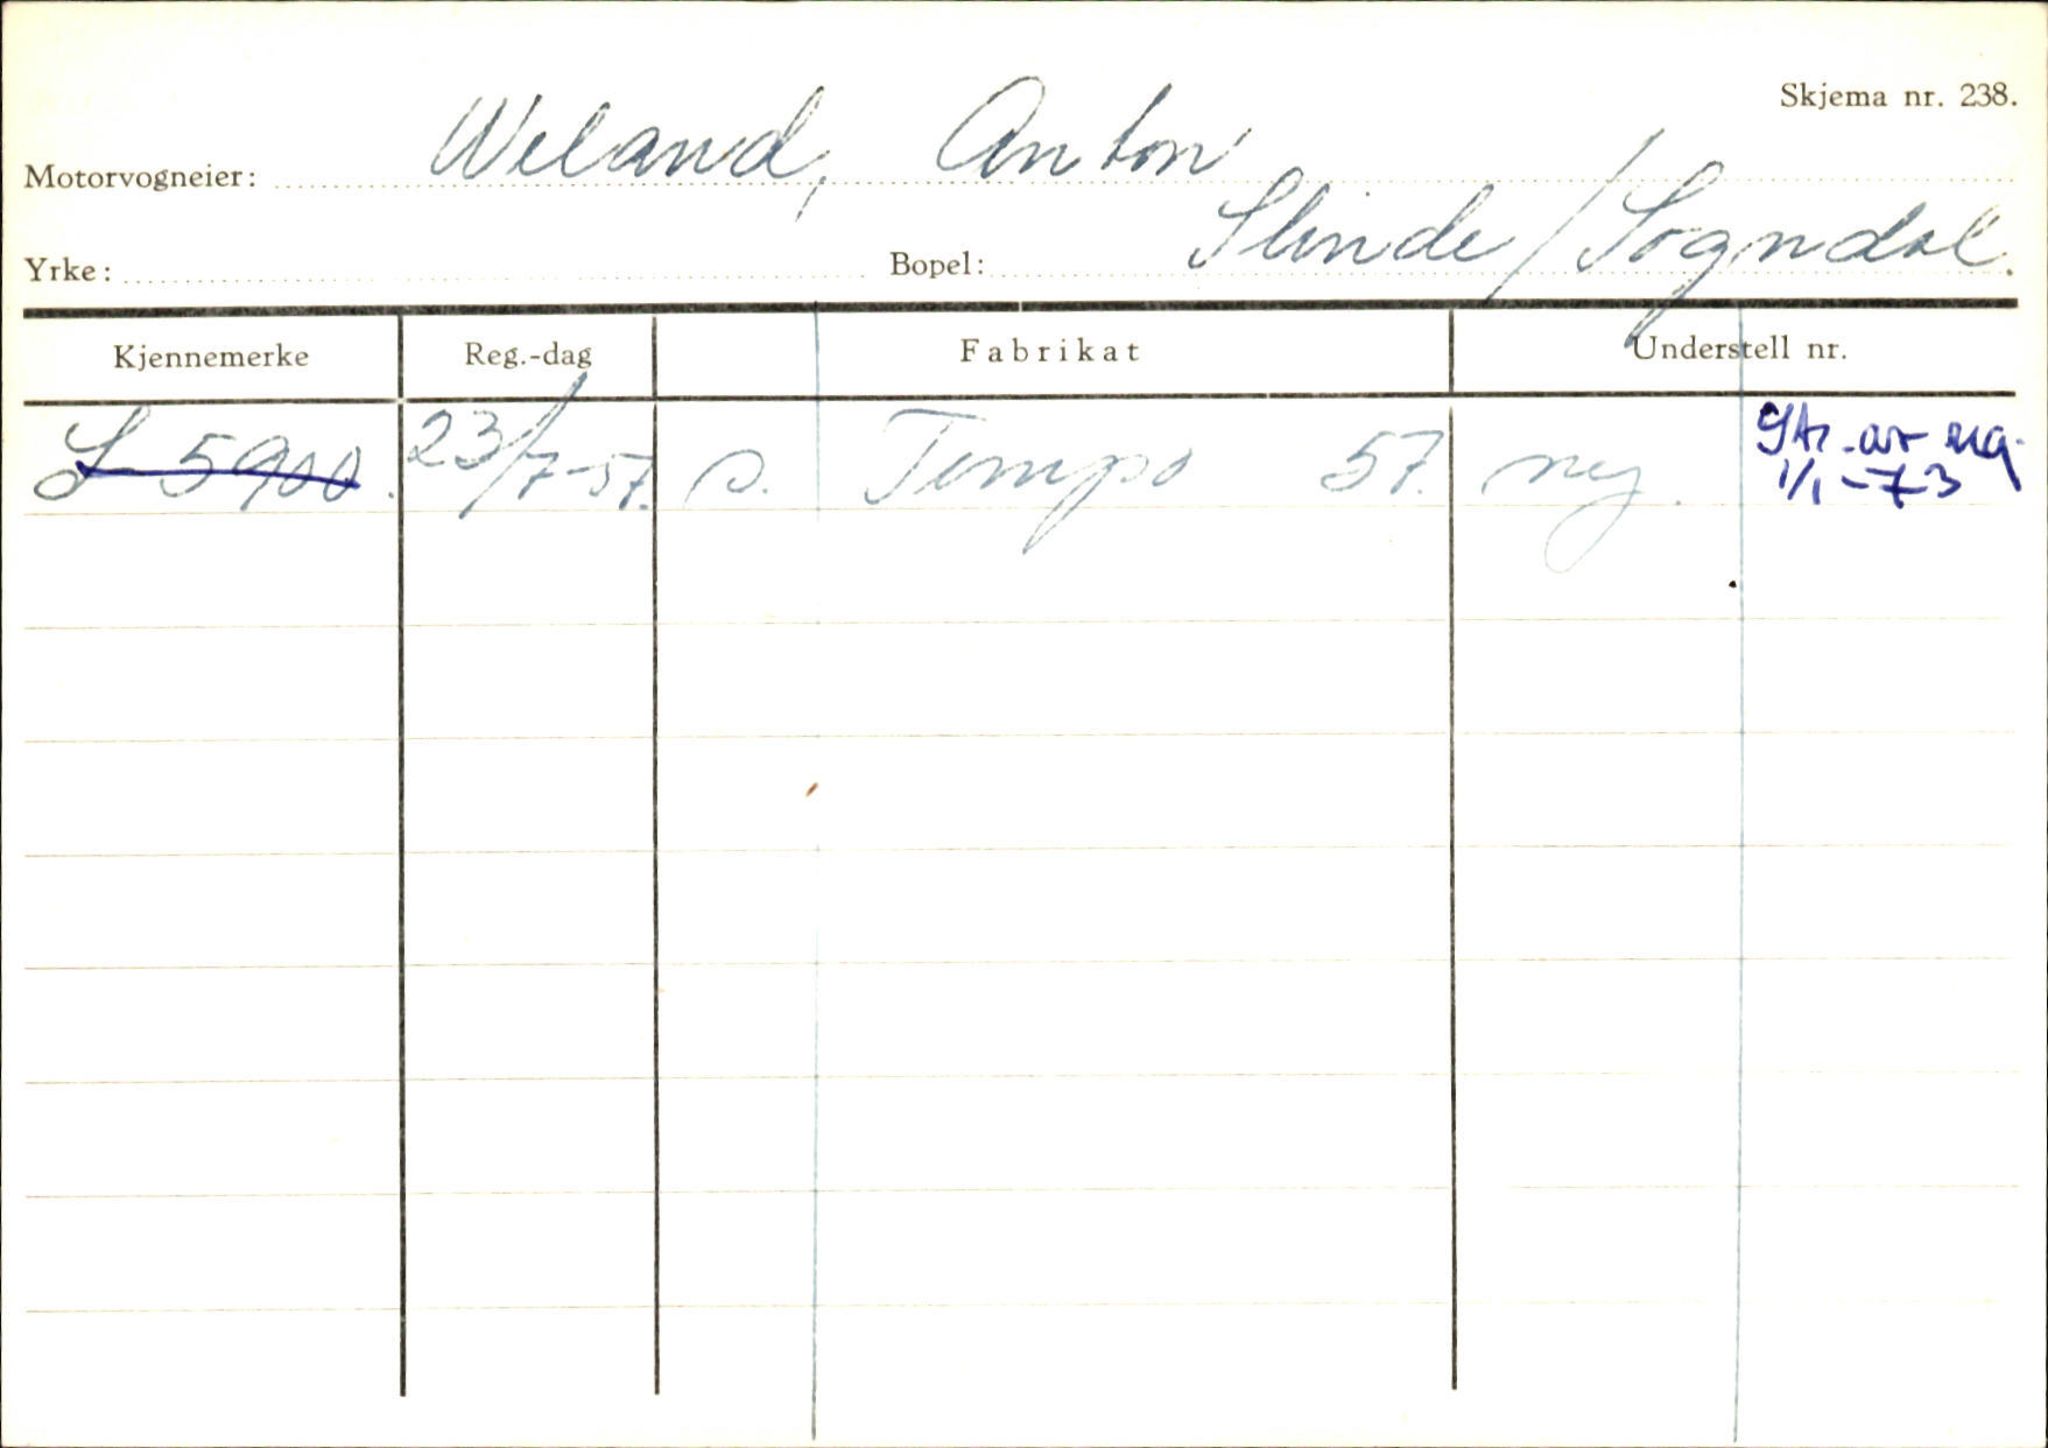 Skjema nr. 238.
Motorvogneier: Weland, Anton
Yrke: Bopel: Slinde / Sogndal.
Kjennemerke Reg.-dag Fabrikat Understell nr.
S-5900. 23/7-57. s. Tempo 57. ny. Str. av reg. 1/1-73